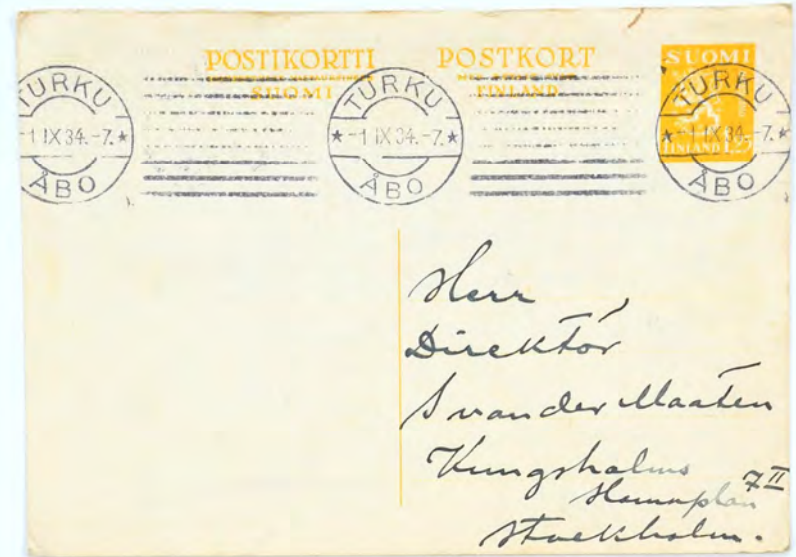 POSTIKORTTI POSTKORT
SUOMI FINLAND
SUOMI
FINLAND 1,25
TURKU
★-1 IX 34.-7.★
ÅBO
TURKU
★-1 IX 34.-7.★
ÅBO
TURKU
★-1 IX 34.-7.★
ÅBO
Herr
Direktör
S van der Maaten
Kungsholms
Hamnplan 7 II
Stockholm.